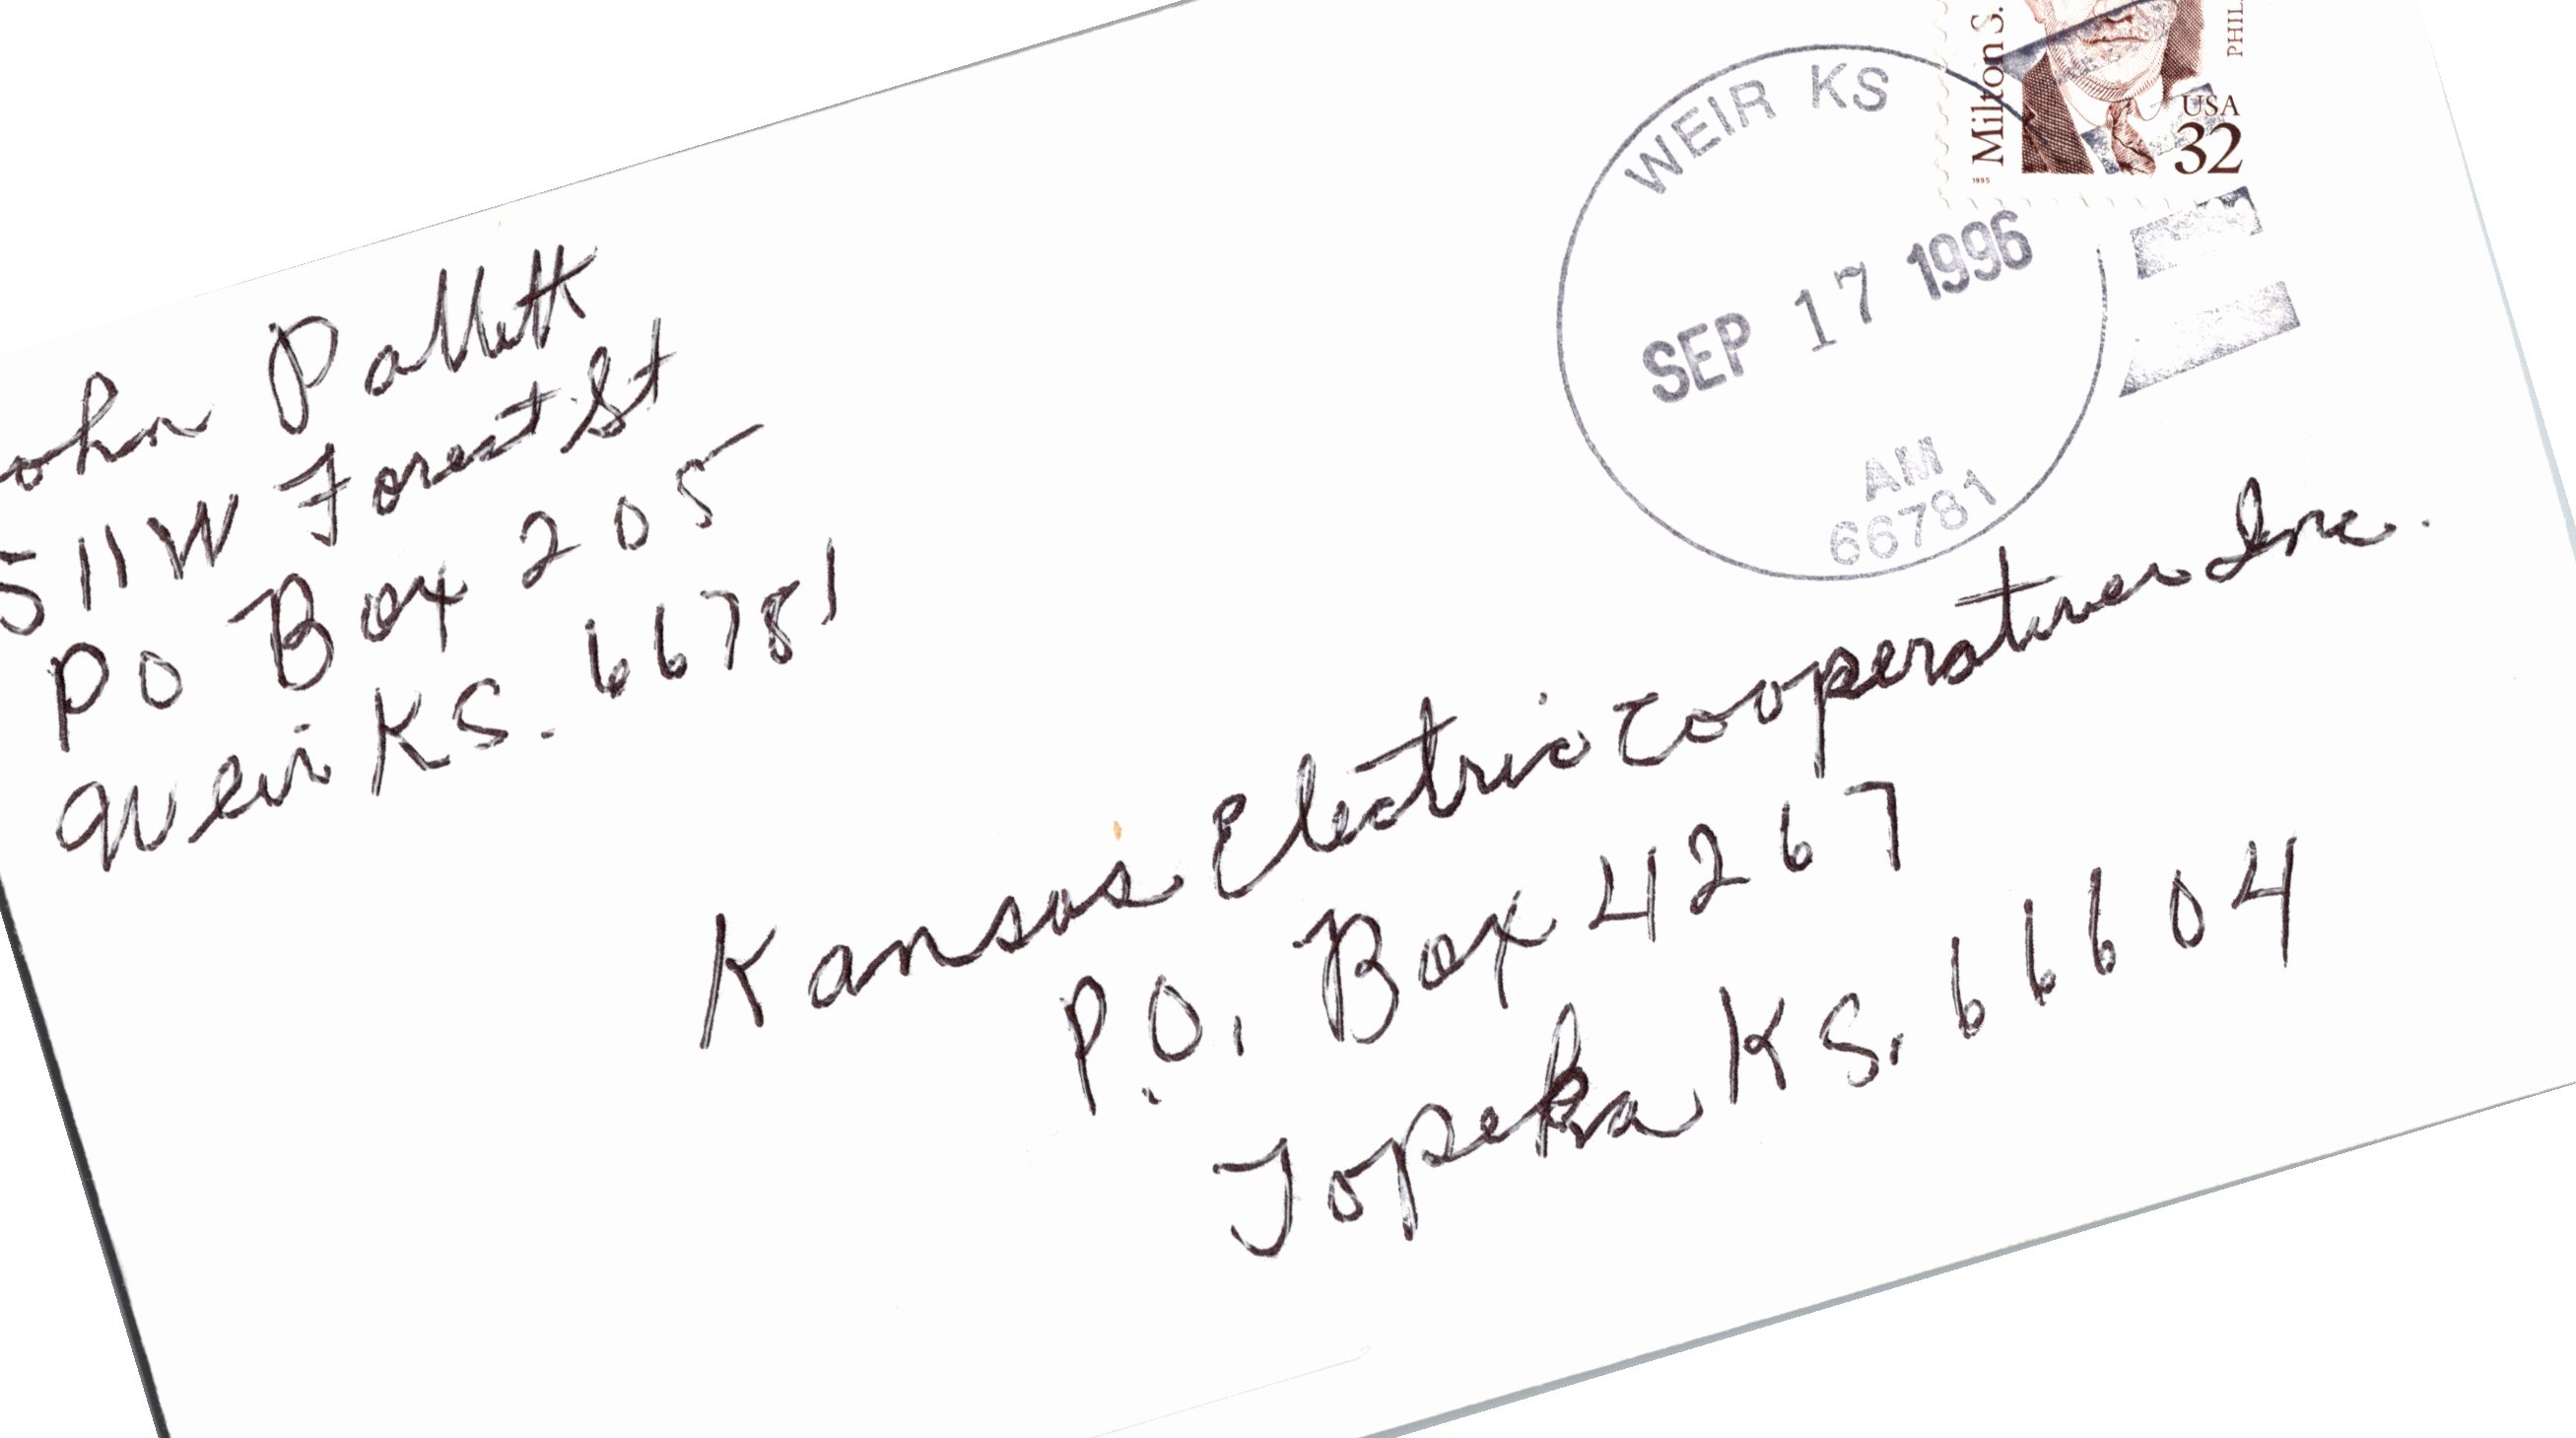 ohn Pallett
511 W Forest St
PO Box 205
Weir KS. 66781
WEIR KS
SEP 17 1996
AM
66781
Milton S.
PHIL
USA
32
1995
Kansas Electric Cooperatives Inc.
P.O. Box 4267
Topeka KS. 66604